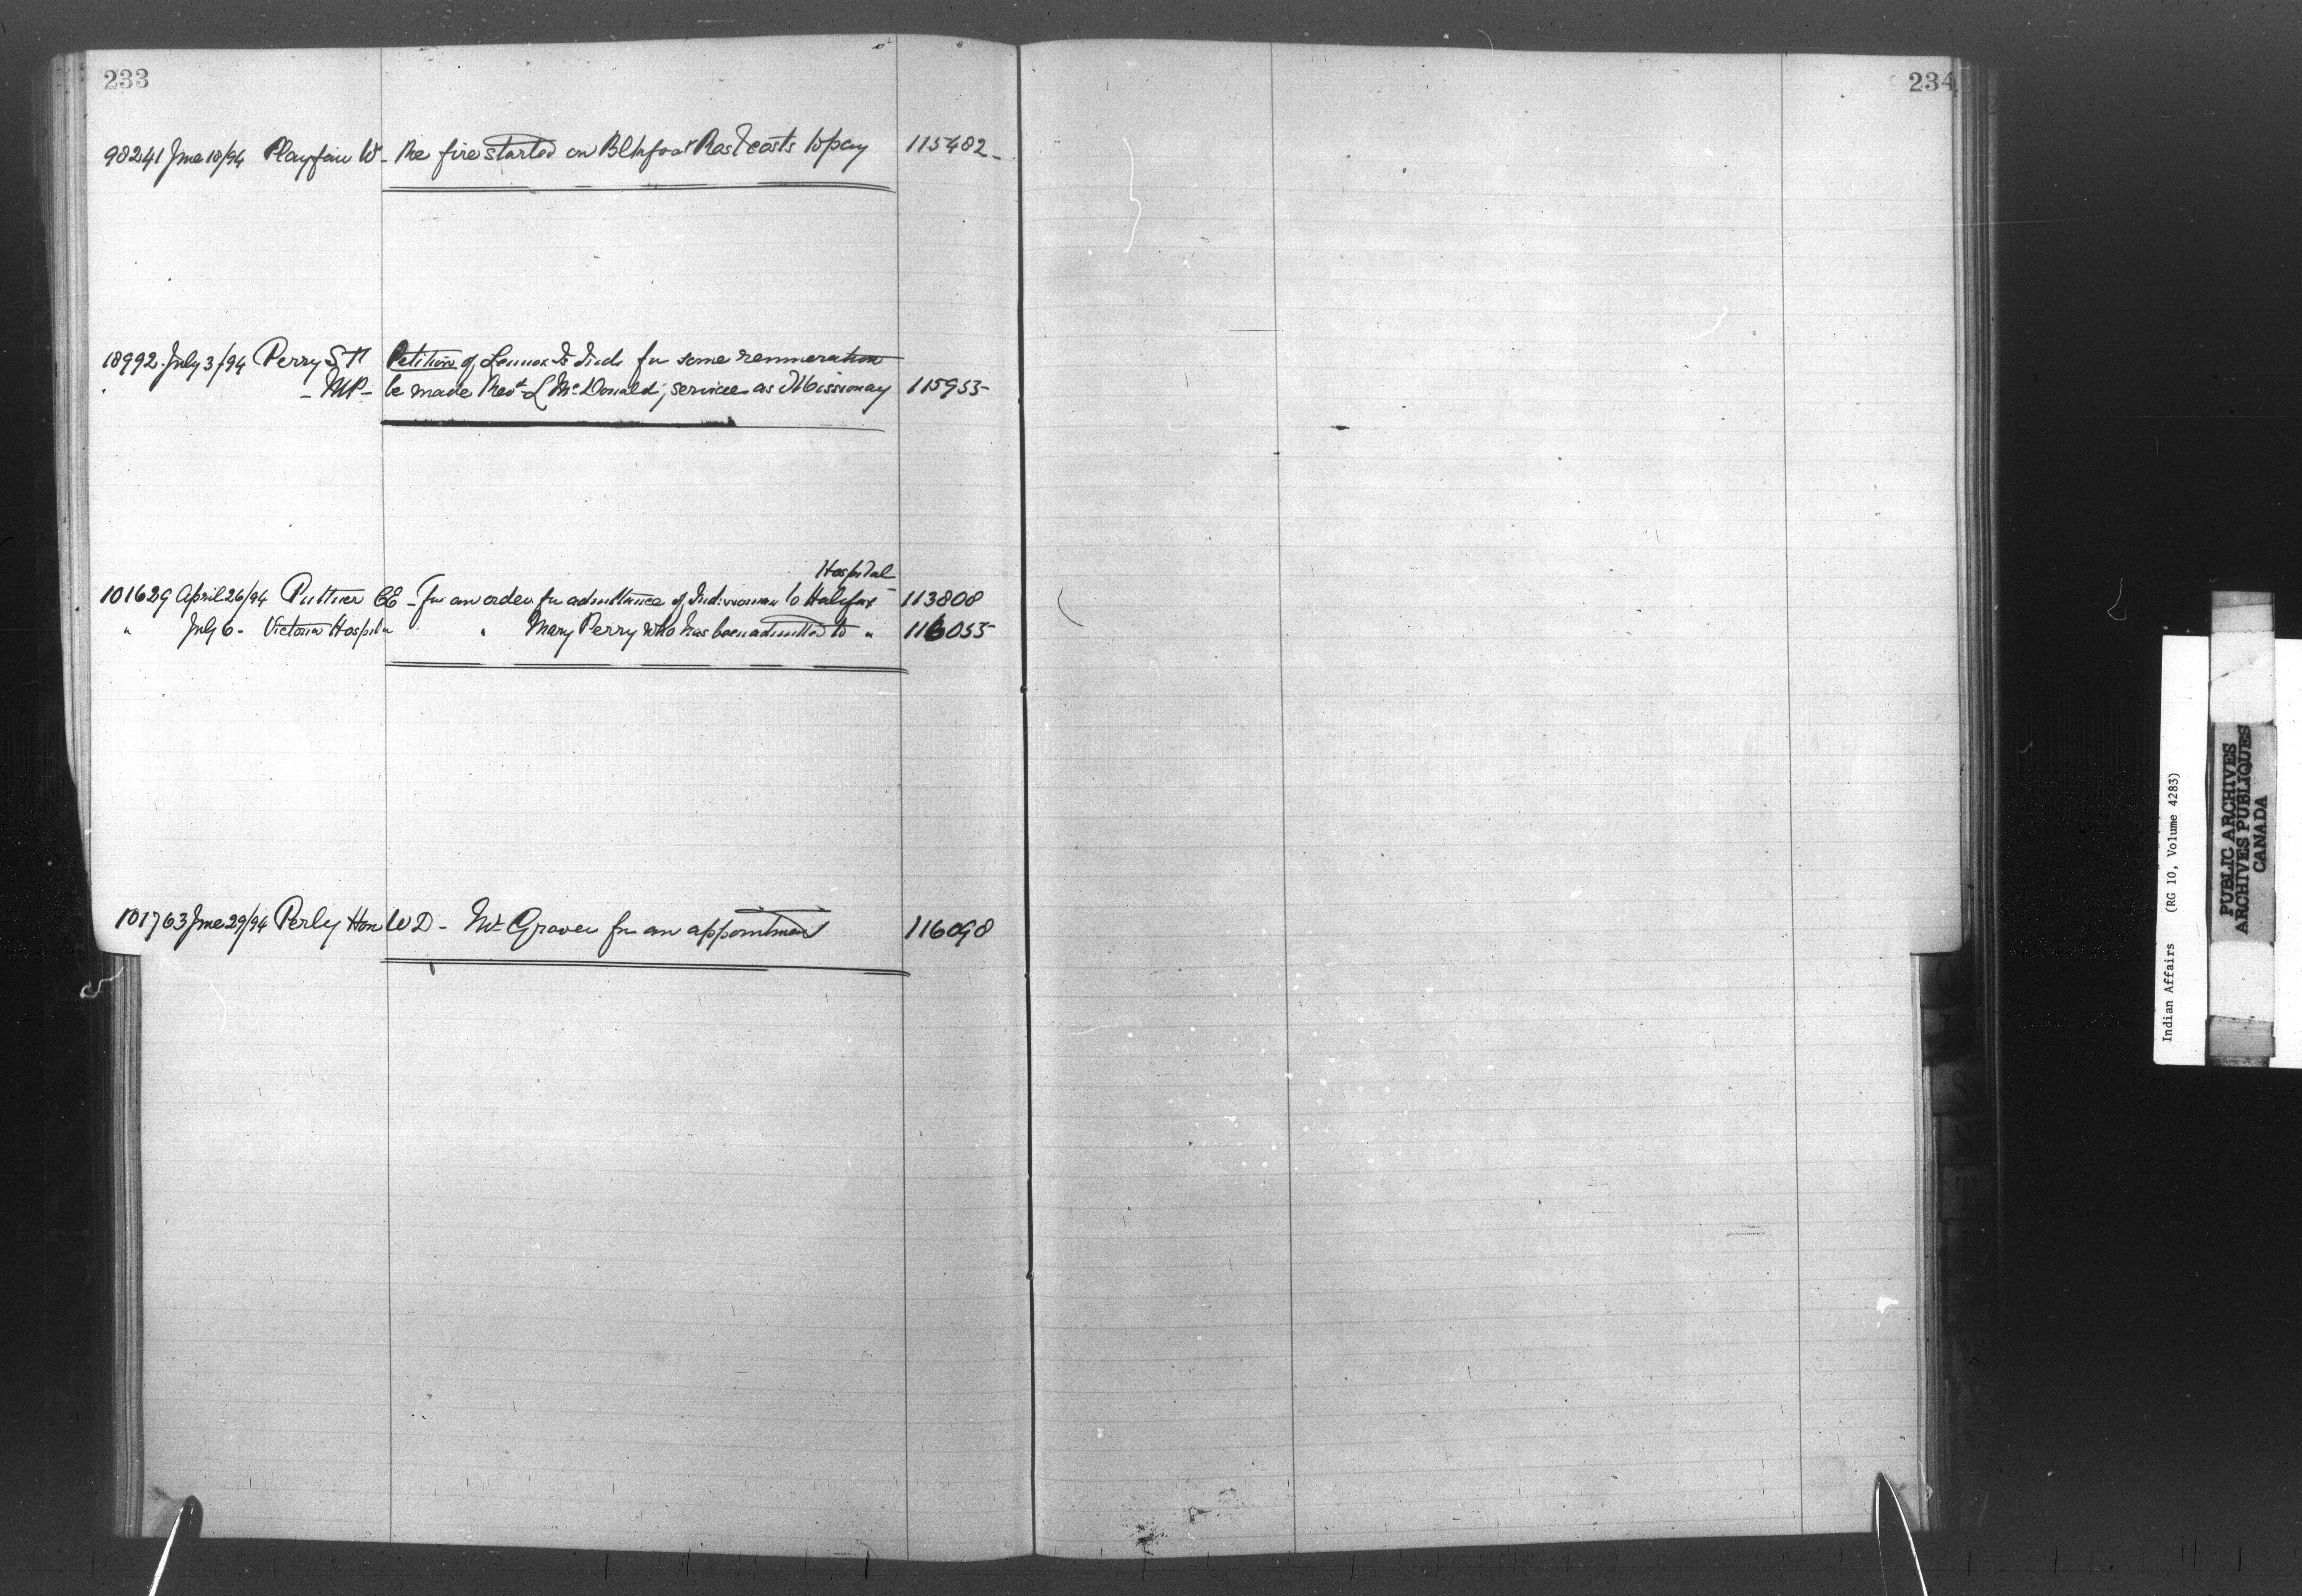 233
234
98241 June 18/94 Playfair W - Re fire started on Blkfoot Res & costs to pay 115482 -
18992 July 3/94 Perry S F Petition of Lennox Is Inds for some remuneration
- MP - be made Revd L McDonald; services as Missionary 115955
Hospital
101629 April 26/94 Puttner CE - For an order for admittance of Ind: woman to Halifax 113808
" July 6 - Victoria Hospital " Mary Perry who has been admitted to " 116055
101763 June 29/94 Perly Hon W D - Mr Graver for an appointment 116098
Indian Affairs (RG 10, Volume 4283)
PUBLIC ARCHIVES
ARCHIVES PUBLIQUES
CANADA